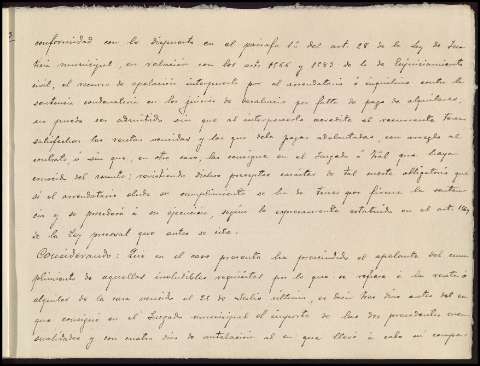 conformidad con lo dispuesto en el párrafo 1º del art. 28 de la Ley de Jus-
ticia municipal, en relación con los arts 1566 y 1583 de la de Enjuiciamiento
civil, el recurso de apelación interpuesto por el arrendatario ó inquilino contra la
sentencia condenatoria en los juicios de desahucio por falta de pago de alquileres,
no puede ser admitido sin que al interponerlo acredite el recurrente tener
satisfechas las rentas vencidas y las que deba pagar adelantadas, con arreglo al
contrato, ó sin que, en otro caso, las consigne en el Juzgado ó Tribl que haya
conocido del asunto; revistiendo dichos preceptos caracter de tal modo obligatorio que
si el arrendatario elude su cumplimiento se ha de tener por firme la senten-
cia y se procederá á su ejecución, según lo expresamente estatuido en el art.
de la Ley procesal que antes se cita.
Considerando: Que en el caso presente ha prescindido el apelante del cum-
plimiento de aquellos ineludibles requisitos por lo que se refiere á la renta ó
alquiler de la casa vencido el 25 de Julio último, es decir tres días antes del en
que consignó en el Juzgado municipal el importe de las dos precedentes men-
sualidades y con cuatro días de antelación al en que llevó á cabo su compa-